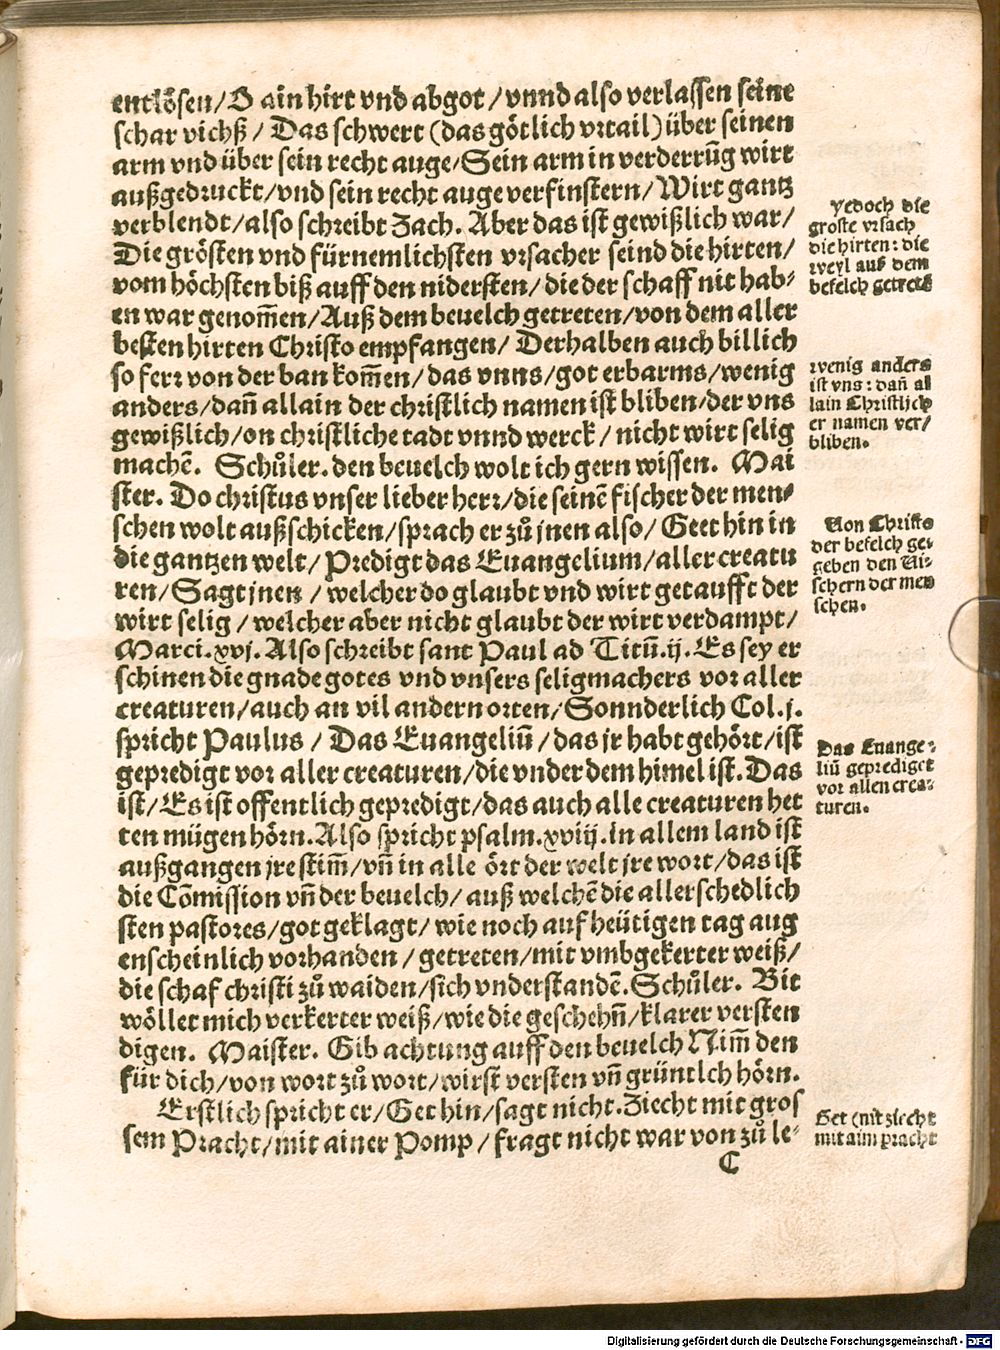 entlösen/O ain hirt vnd abgot/vnnd also verlassen seine
schar vichß/Das schwert (das götlich vrtail) über seinen
arm vnd über sein recht auge/Sein arm in verderrūg wirt
außgedruckt/vnd sein recht auge verfinstern/Wirt gantz
verblendt/also schreibt Zach. Aber das ist gewißlich war/
Die grösten vnd fürnemlichsten vrsacher seind die hirten/
vom höchsten biß auff den nidersten/die der schaff nit hab-
en war genom̄en/Auß dem beuelch getreten/von dem aller
besten hirten Christo empfangen/Derhalben auch billich
so ferr von der ban kom̄en/das vnns/got erbarms/wenig
anders/dañ allain der christlich namen ist bliben/der vns
gewißlich/on christliche tadt vnnd werck/nicht wirt selig
machē. Schůler. den beuelch wolt ich gern wissen. Mai
ster. Do christus vnser lieber herr/die seinē fischer der men-
schen wolt außschicken/sprach er zů jnen also/Geet hin in
die gantzen welt/Predigt das Euangelium/aller creatu
ren/Sagt jnen/welcher do glaubt vnd wirt getaufft der
wirt selig/welcher aber nicht glaubt der wirt verdampt/
Marci.xvj. Also schreibt sant Paul ad Titū.ij. Es sey er
schinen die gnade gotes vnd vnsers seligmachers vor aller
creaturen/auch an vil andern orten/Sonnderlich Col.j.
spricht Paulus/Das Euangeliū/das jr habt gehört/ist
gepredigt vor aller creaturen/die vnder dem himel ist. Das
ist/Es ist offentlich gepredigt/das auch alle creaturen het
ten mügen hörn. Also spricht psalm.xviij. in allem land ist
außgangen jre stim̄/vñ in alle ört der welt jre wort/das ist
die Cōmission vñ der beuelch/auß welchē die allerschedlich
sten pastores/got geklagt/wie noch auf heütigen tag aug
enscheinlich vorhanden/getreten/mit vmbgekerter weiß/
die schaf christi zů waiden/sich vnderstandē. Schůler. Bit
wöllet mich verkerter weiß/wie die geschehñ/klarer versten
digen. Maister. Gib achtung auff den beuelch Nim̄ den
für dich/von wort zů wort/wirst versten vñ gründtlch hörn.
Erstlich spricht er/Get hin/sagt nicht. Ziecht mit gros
sem Pracht/mit ainer Pomp/fragt nicht war von zů le-
C
Yedoch die
groste vrsach
die hirten: die
weyl auß dem
befelch getretē
wenig anders
ist vns: dañ al
lain Christlich
er namen ver/
bliben.
Von Christo
der befelch ge-
geben den Vi-
schern der men
schen.
Das Euange-
liū geprediget
vor allen crea-
turen.
Get (nit ziecht
mit aim pracht
Digitalisierung gefördert durch die Deutsche Forschungsgemeinschaft - DFG